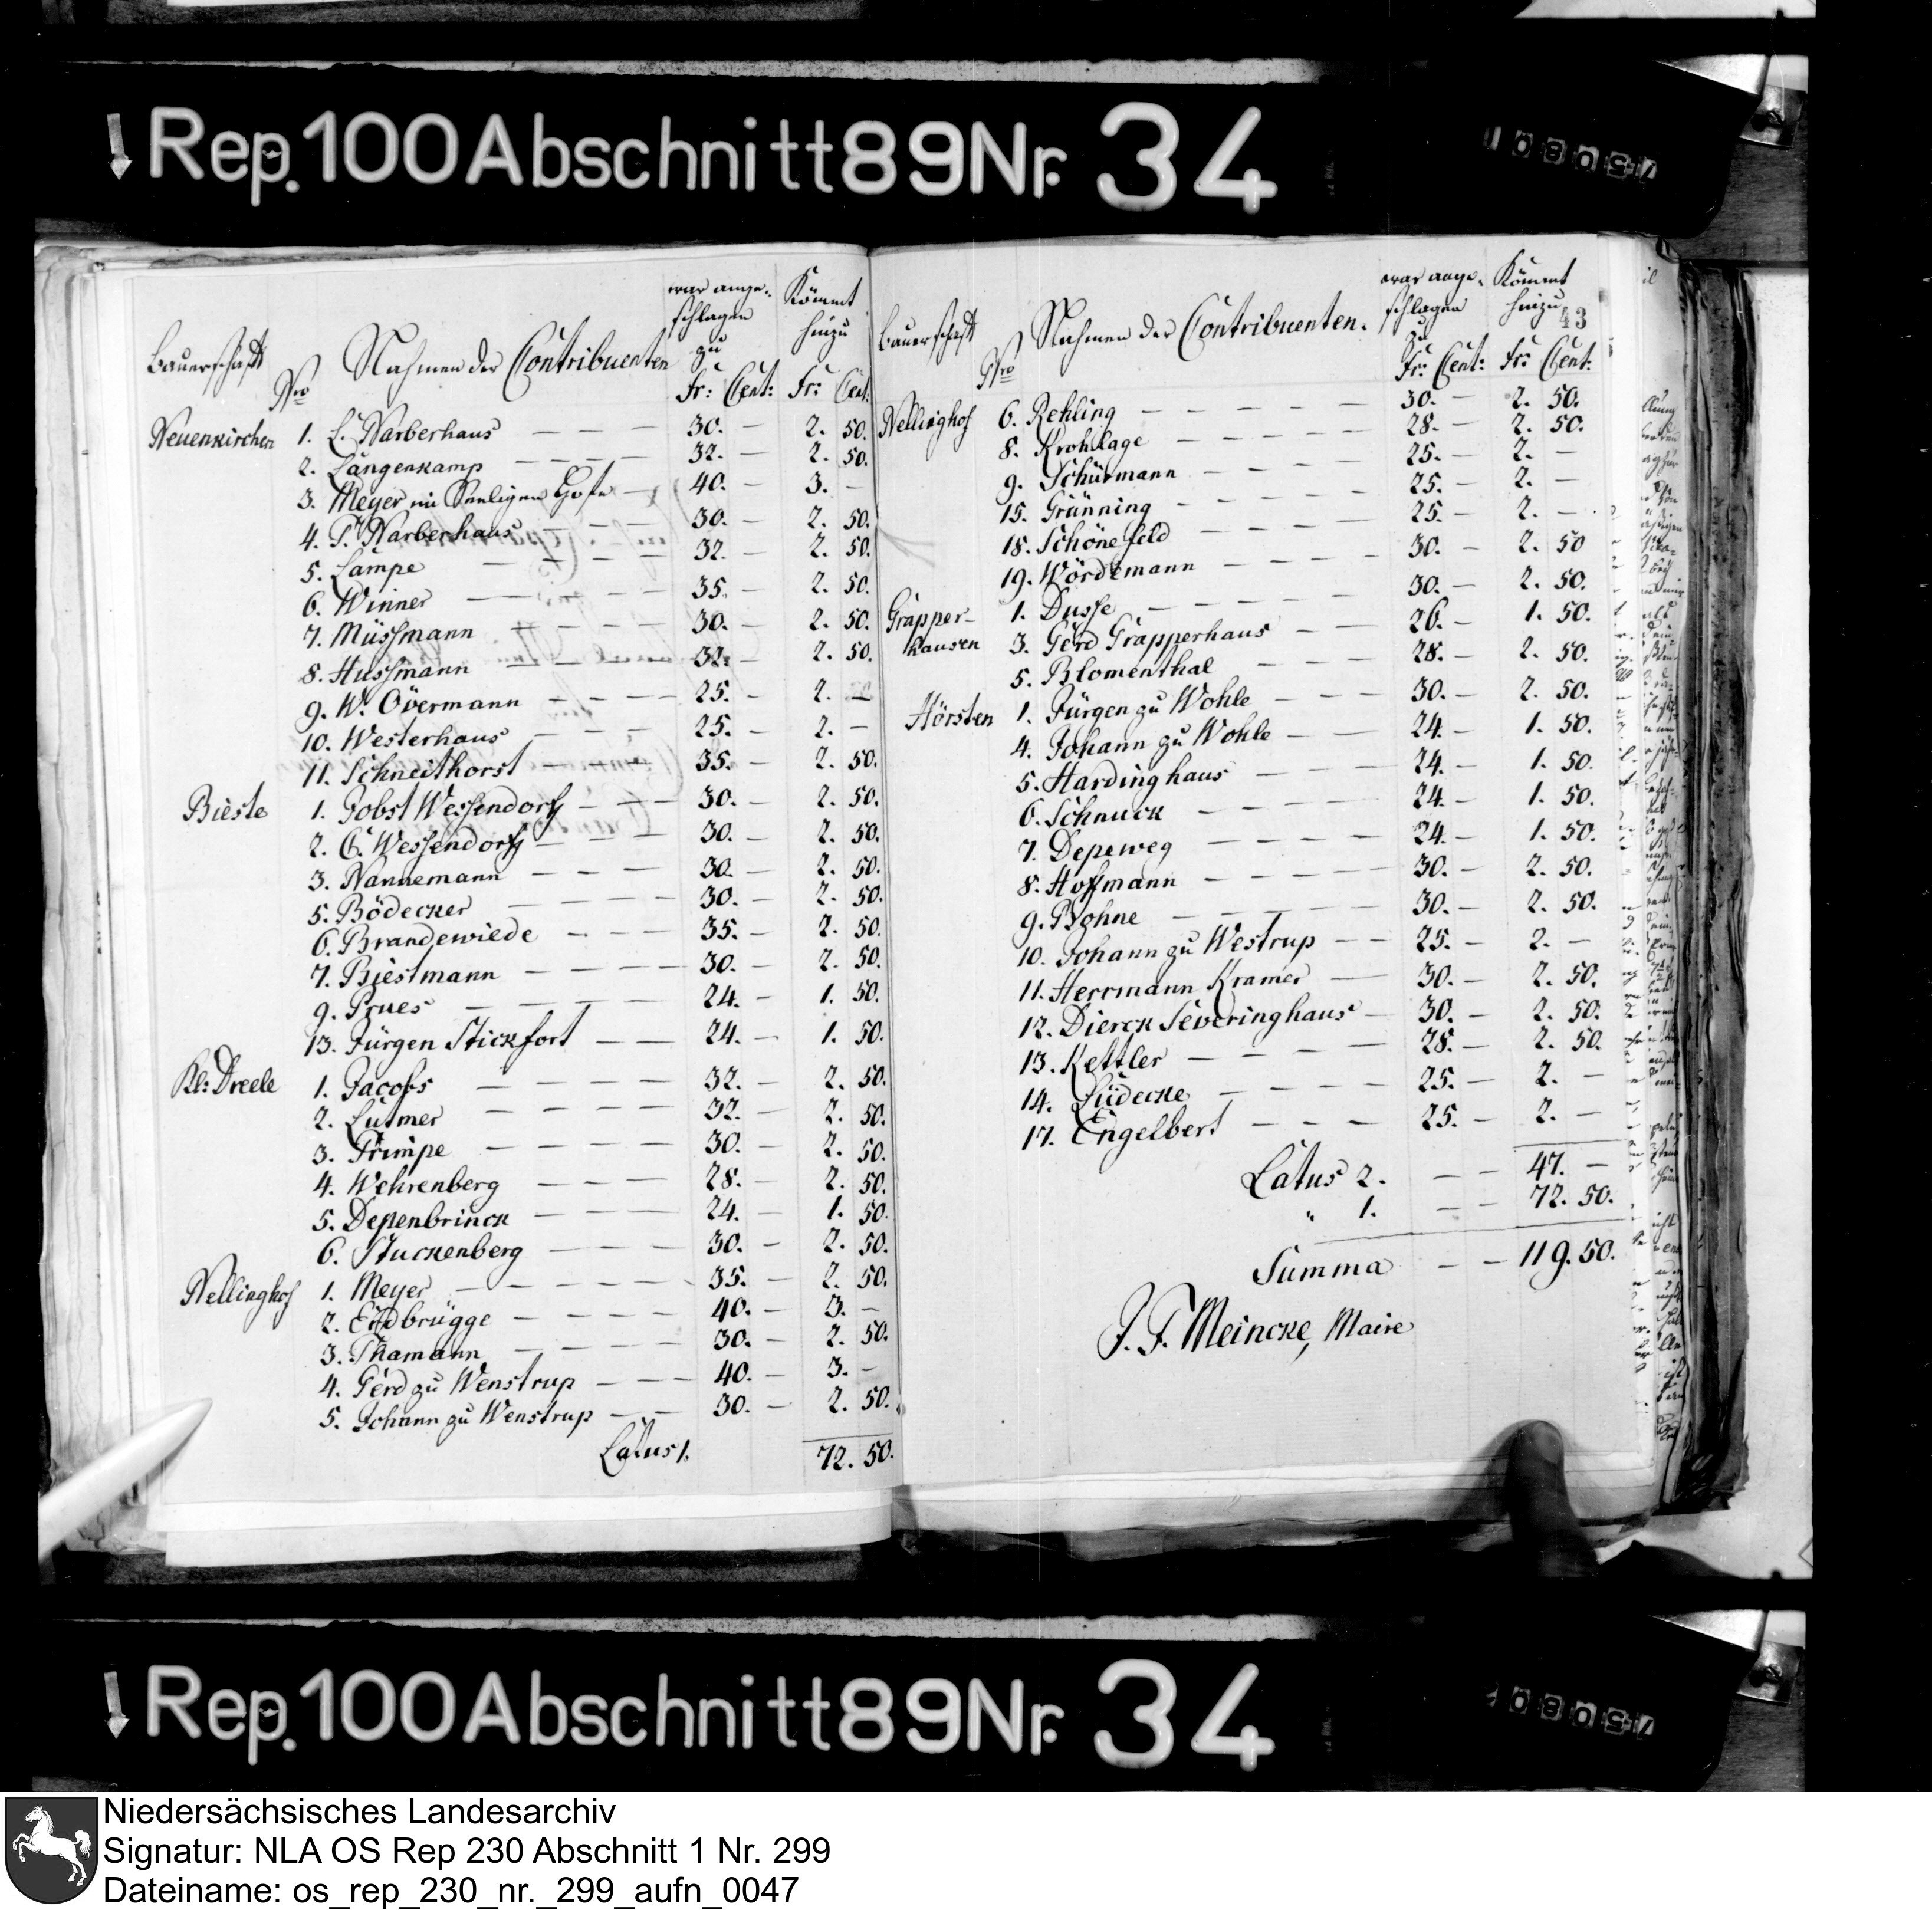 Rep. 100 Abschnitt 89 Nr. 34
Bauerschaft Nro Nahmen der Contribuenten war ange- schlagen zu Fr: Cent: Kömmt hinzu Fr: Cent:
Neuenkirchen 1. L. Narberhaus — — — 30. — 2. 50.
2. Langenkamp — — — — 32. — 2. 50.
3. Meyer im Seeligen Hofe — 40. — 3. —
4. T. Narberhaus — — — 30. — 2. 50.
5. Lampe — — — 32. — 2. 50.
6. Winner — — — — 35. — 2. 50.
7. Müssmann — — — — 30. — 2. 50.
8. Hussmann — — — — 32. — 2. 50.
9. W. Övermann — — — — 25. — 2. —
10. Westerhaus — — — 25. — 2. —
11. Schneithorst — — — 35. — 2. 50.
Bieste 1. Jobst Wessendorf — — — 30. — 2. 50.
2. C. Wessendorf — — — 30. — 2. 50.
3. Nannemann — — — 30. — 2. 50.
5. Bödecker — — — — 30. — 2. 50.
6. Brandewiede — — — 35. — 2. 50.
7. Biestmann — — — — 30. — 2. 50.
9. Prues — — — — 24. — 1. 50.
13. Jürgen Stickfort — — 24. — 1. 50.
Kl: Dreele 1. Jacobs — — — — 32. — 2. 50.
2. Lutmer — — — — 32. — 2. 50.
3. Trimpe — — — — 30. — 2. 50.
4. Wehrenberg — — — 28. — 2. 50.
5. Depenbrinck — — — 24. — 1. 50.
6. Stuckenberg — — — 30. — 2. 50.
Nellinghof 1. Meyer — — — — 35. — 2. 50.
2. Erdbrügge — — — — 40. — 3. —
3. Thamann — — — — 30. — 2. 50.
4. Gerd zu Wenstrup — — — 40. — 3. —
5. Johann zu Wenstrup — — 30. — 2. 50.
Latus 1. 72. 50.
43
Bauerschaft Nro Nahmen der Contribuenten. war ange- schlagen zu Fr: Cent: Kömmt hinzu Fr: Cent:
Nellinghof 6. Rehling — — — — 30. — 2. 50.
8. Krohlage — — — — 28. — 2. 50.
9. Schürmann — — — — 25. — 2. —
15. Grünning — — — — 25. — 2. —
18. Schönefeld — — — — 25. — 2. —
19. Wördemann — — — — 30. — 2. 50
Grapper- hausen 1. Dusse — — — — 30. — 2. 50.
3. Gerd Grapperhaus — — 26. — 1. 50.
5. Blomenthal — — — 28. — 2. 50.
Hörsten 1. Jürgen zu Wohle — — — 30. — 2. 50.
4. Johann zu Wohle — — 24. — 1. 50.
5. Hardinghaus — — — 24. — 1. 50.
6. Schnuck — — — — 24. — 1. 50.
7. Depeweg — — — — 24. — 1. 50.
8. Hoffmann — — — — 30. — 2. 50.
9. Bohne — — — — 30. — 2. 50.
10. Johann zu Westrup — — 25. — 2. —
11. Herrmann Kramer — 30. — 2. 50.
12. Dierck Severinghaus — 30. — 2. 50.
13. Kettler — — — — 28. — 2. 50.
14. Lüdecke — — — — 25. — 2. —
17. Engelbert — — — 25. — 2. —
Latus 2. — — 47. —
" 1. — — 72. 50.
Summa — — 119. 50.
J. F. Meincke, Maire
Rep. 100 Abschnitt 89 Nr. 34
Niedersächsisches Landesarchiv
Signatur: NLA OS Rep 230 Abschnitt 1 Nr. 299
Dateiname: os_rep_230_nr._299_aufn_0047